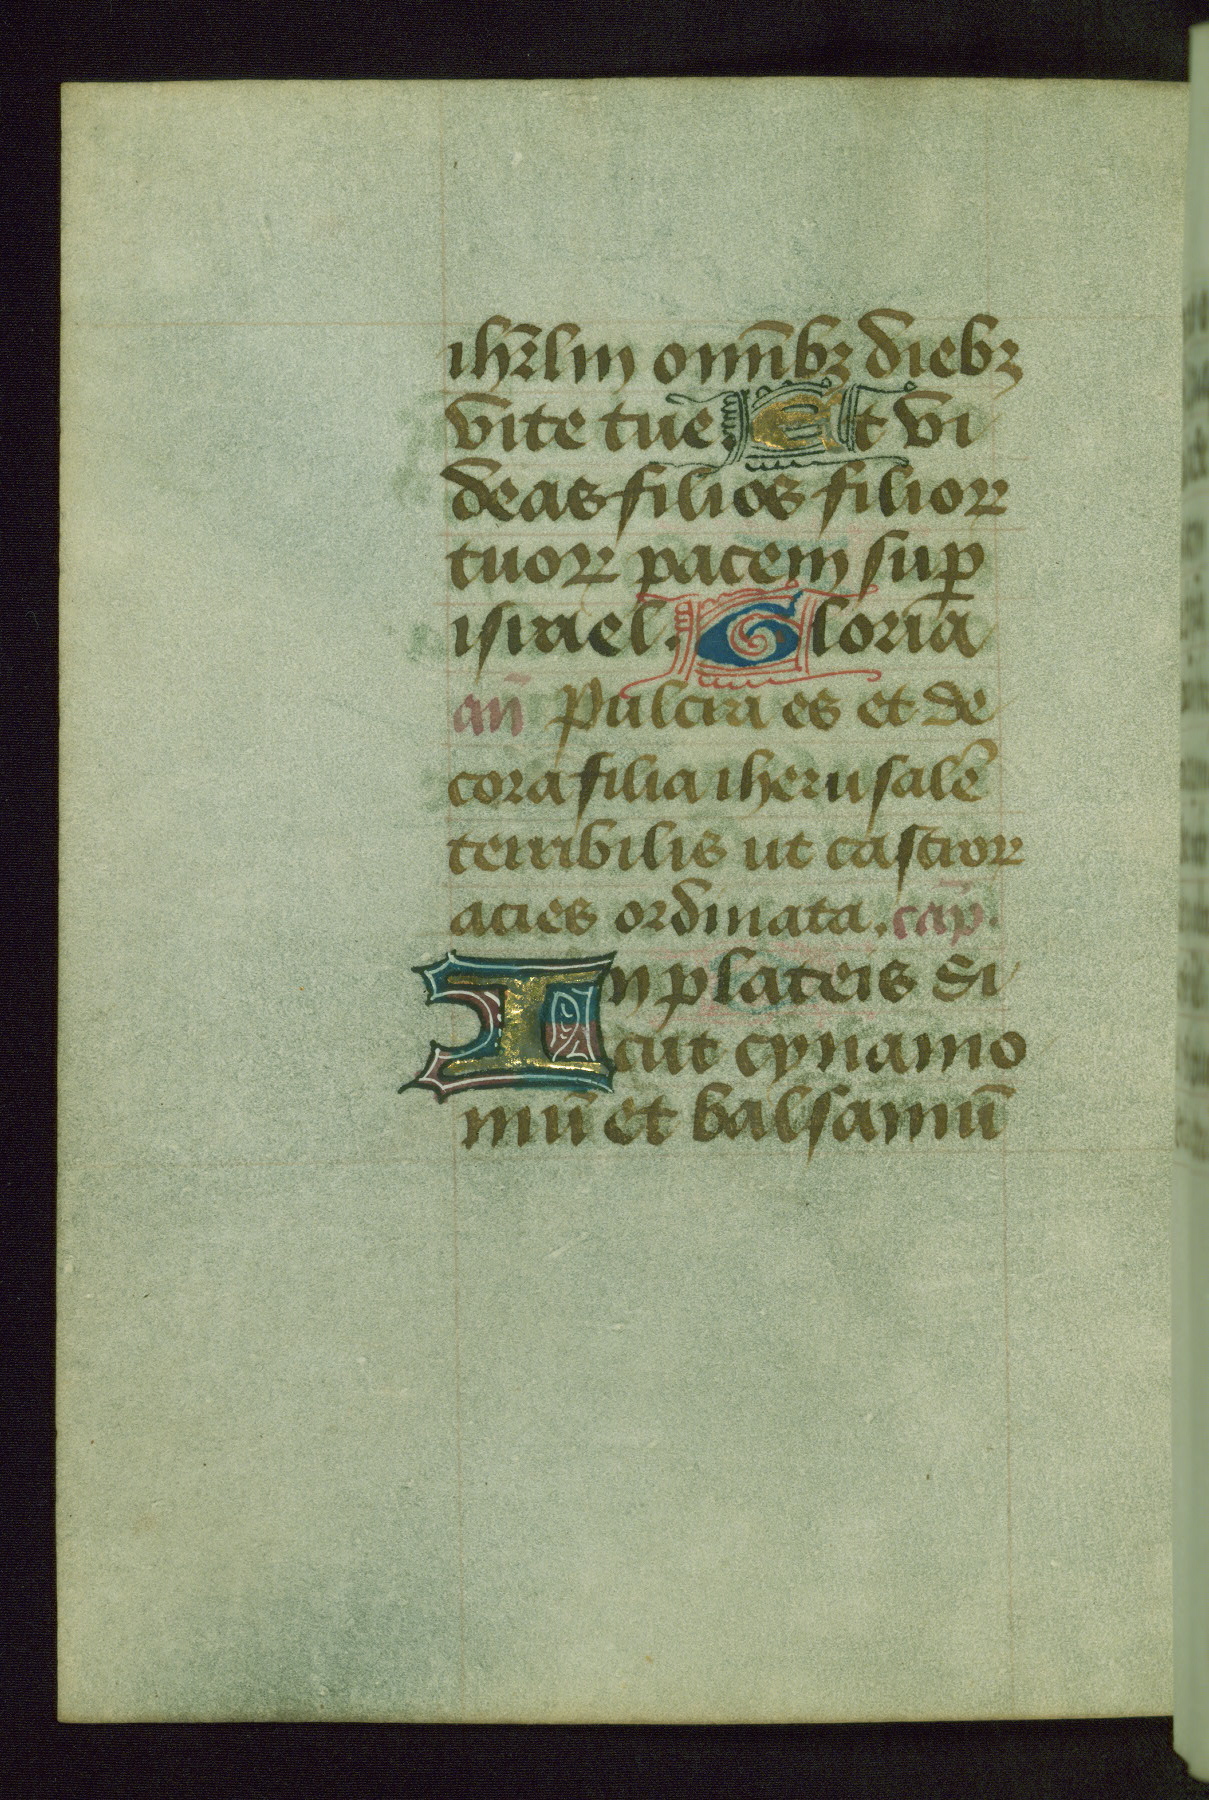 ihr̄lm omnībꝫ diebꝫ
vite tue. Et vi
deas filios filioꝝ
tuoꝝ pacem suꝑ
israel. Gloria
an̄ Pulcra es et de
cora filia iherusalē
terribilis ut castroꝝ
acies ordinata. cap̄.
In plateis si
cut cynamo
mū et balsamū